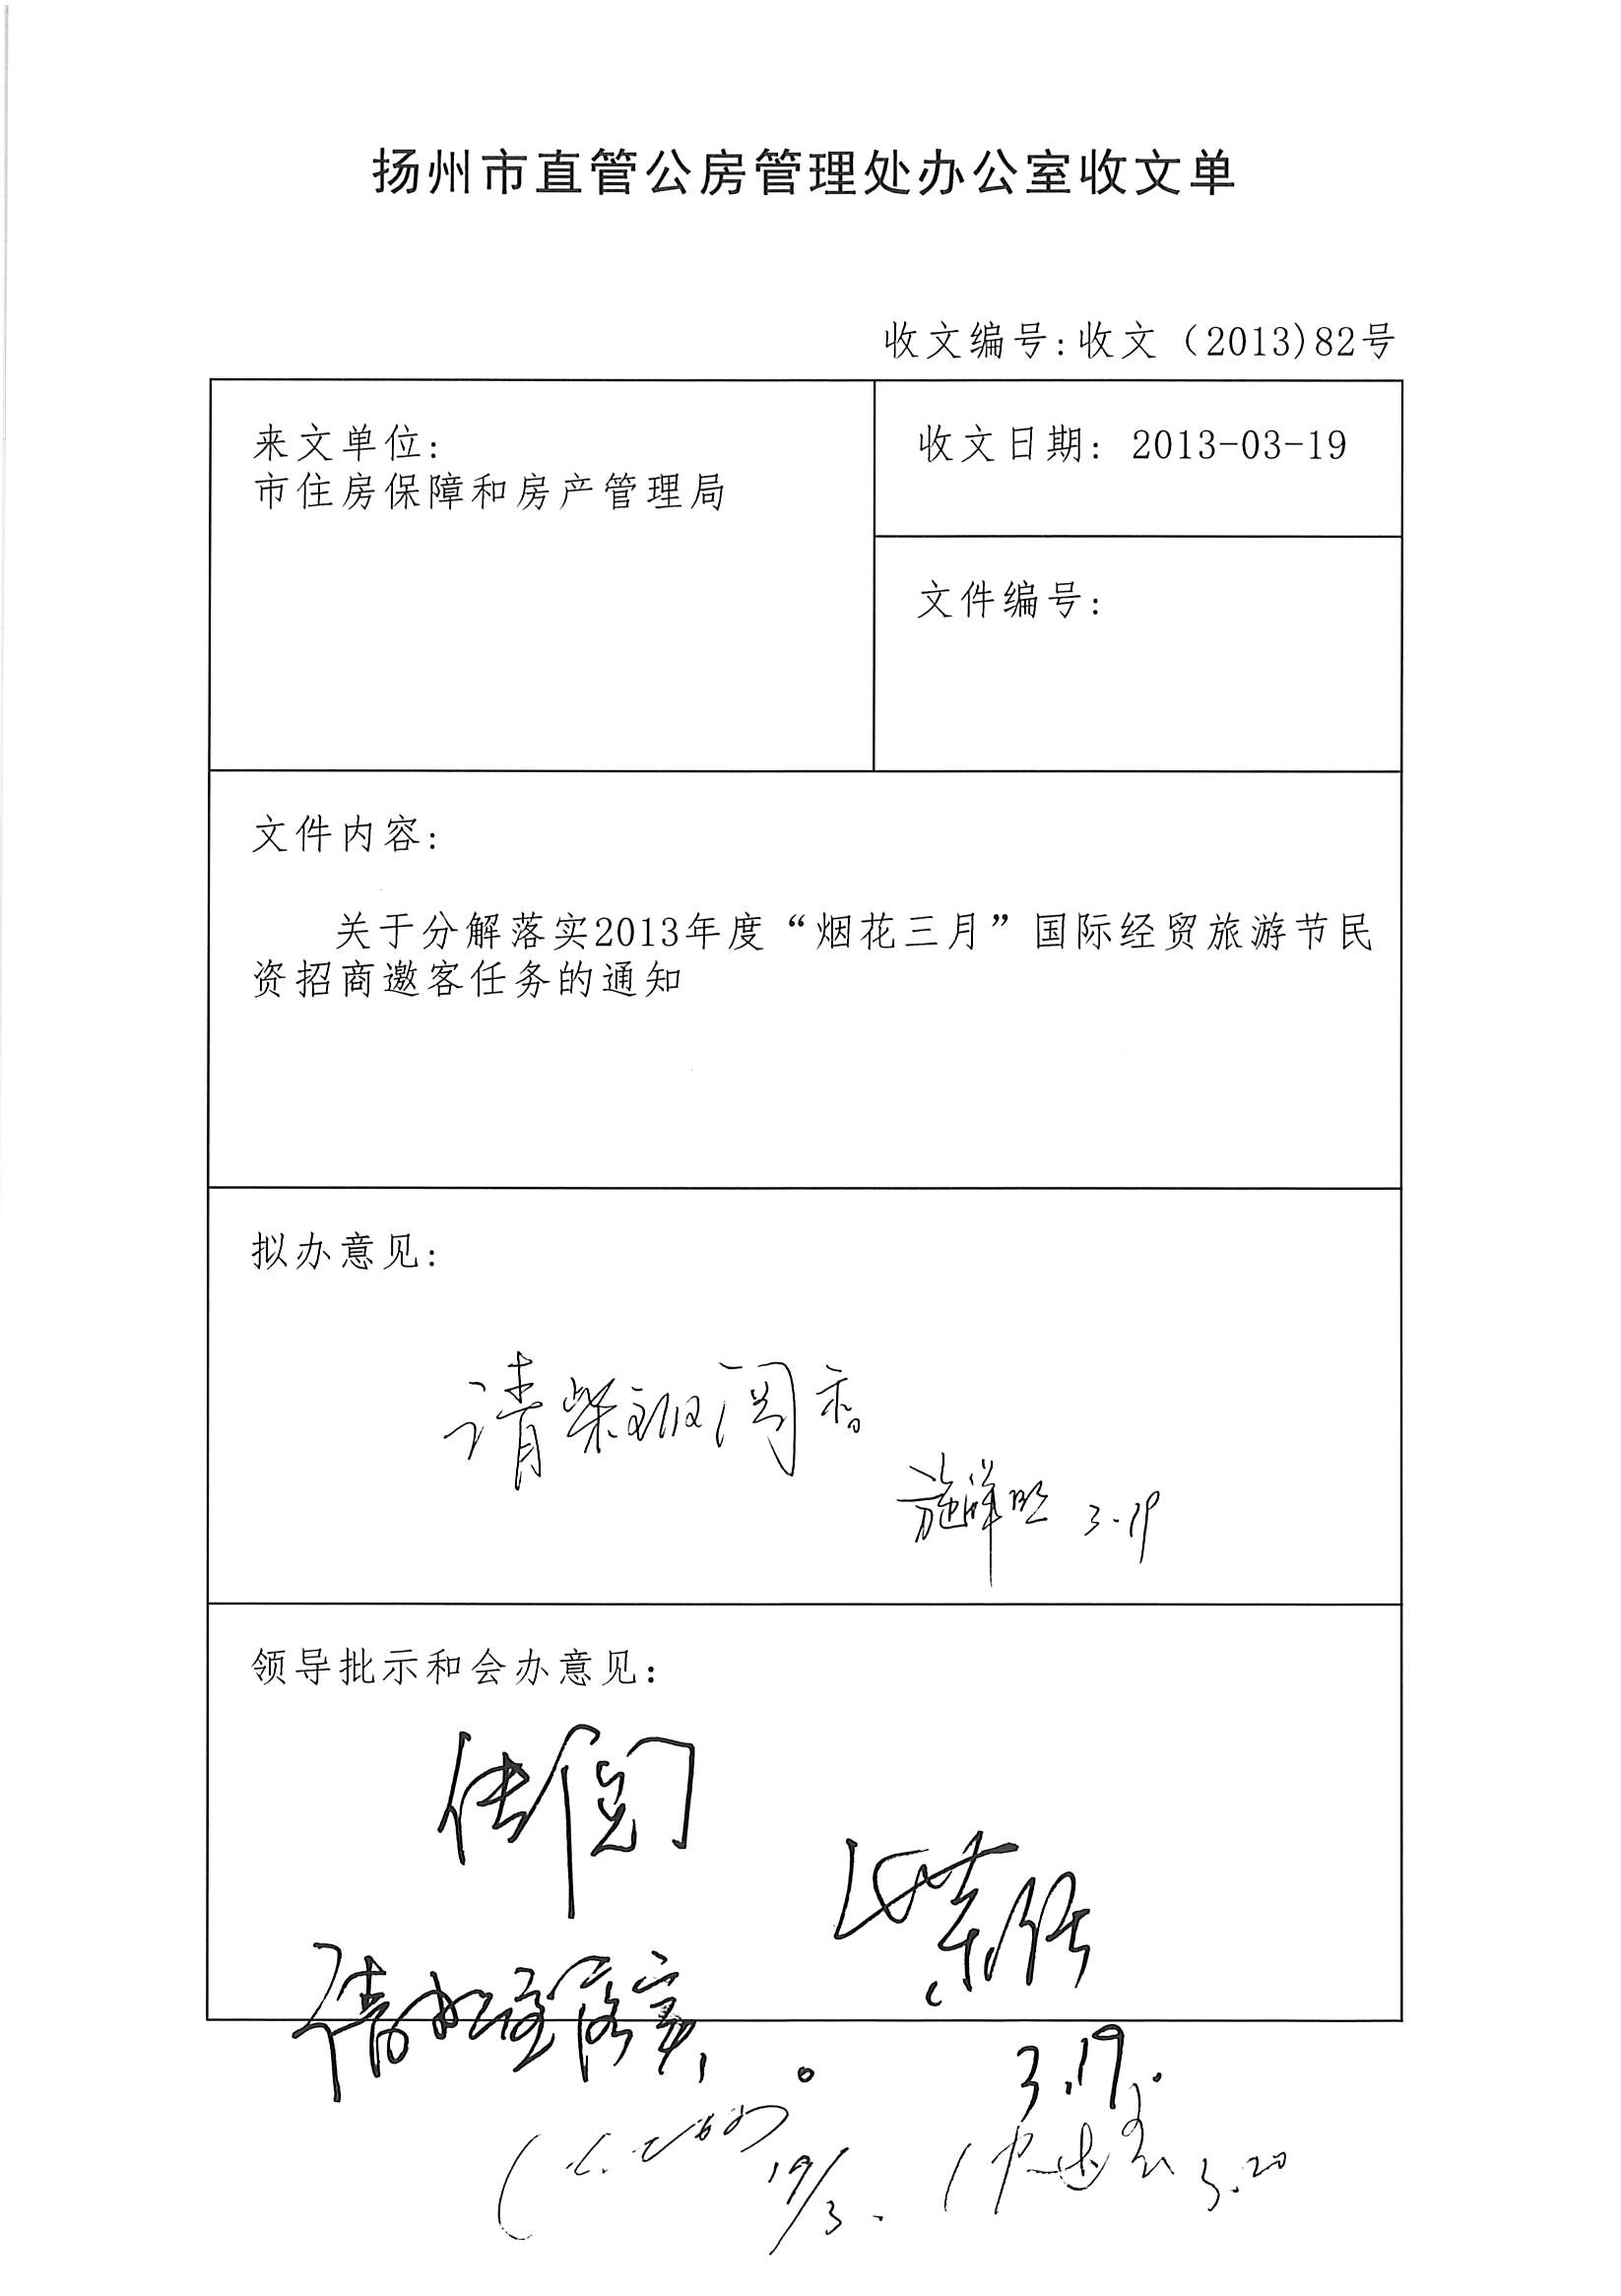 扬州市直管公房管理处办公室收文单
收文编号:收文（2013)82号
来文单位:
市住房保障和房产管理局
收文日期: 2013-03-19
文件编号:
文件内容:
关于分解落实2013年度“烟花三月”国际经贸旅游节民
资招商邀客任务的通知
拟办意见:
请柴主任阅示
3.19
领导批示和会办意见:
传阅
落实。
3.19.
19/3.
3.20